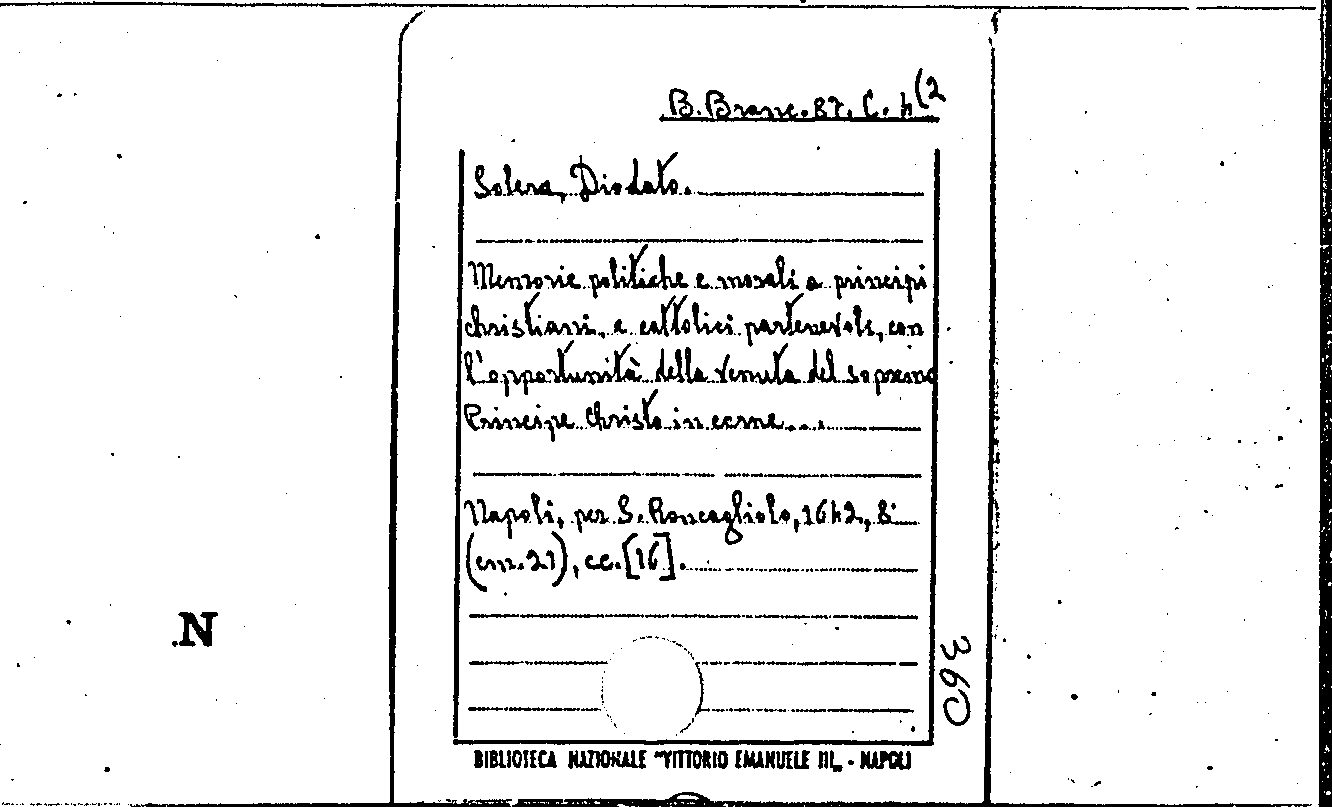 B. Branc. 87. C. 4 (2
Solera, Diodato.
Memorie politiche e morali a principi
christiani, e cattolici partenevole, con
l'opportunità della venuta del sopremo
Principe Christo in carne...
Napoli, per S. Roncagliolo, 1642, 8°
(cm. 21), cc. [16].
N
360
BIBLIOTECA NAZIONALE "VITTORIO EMANUELE III„ - NAPOLI